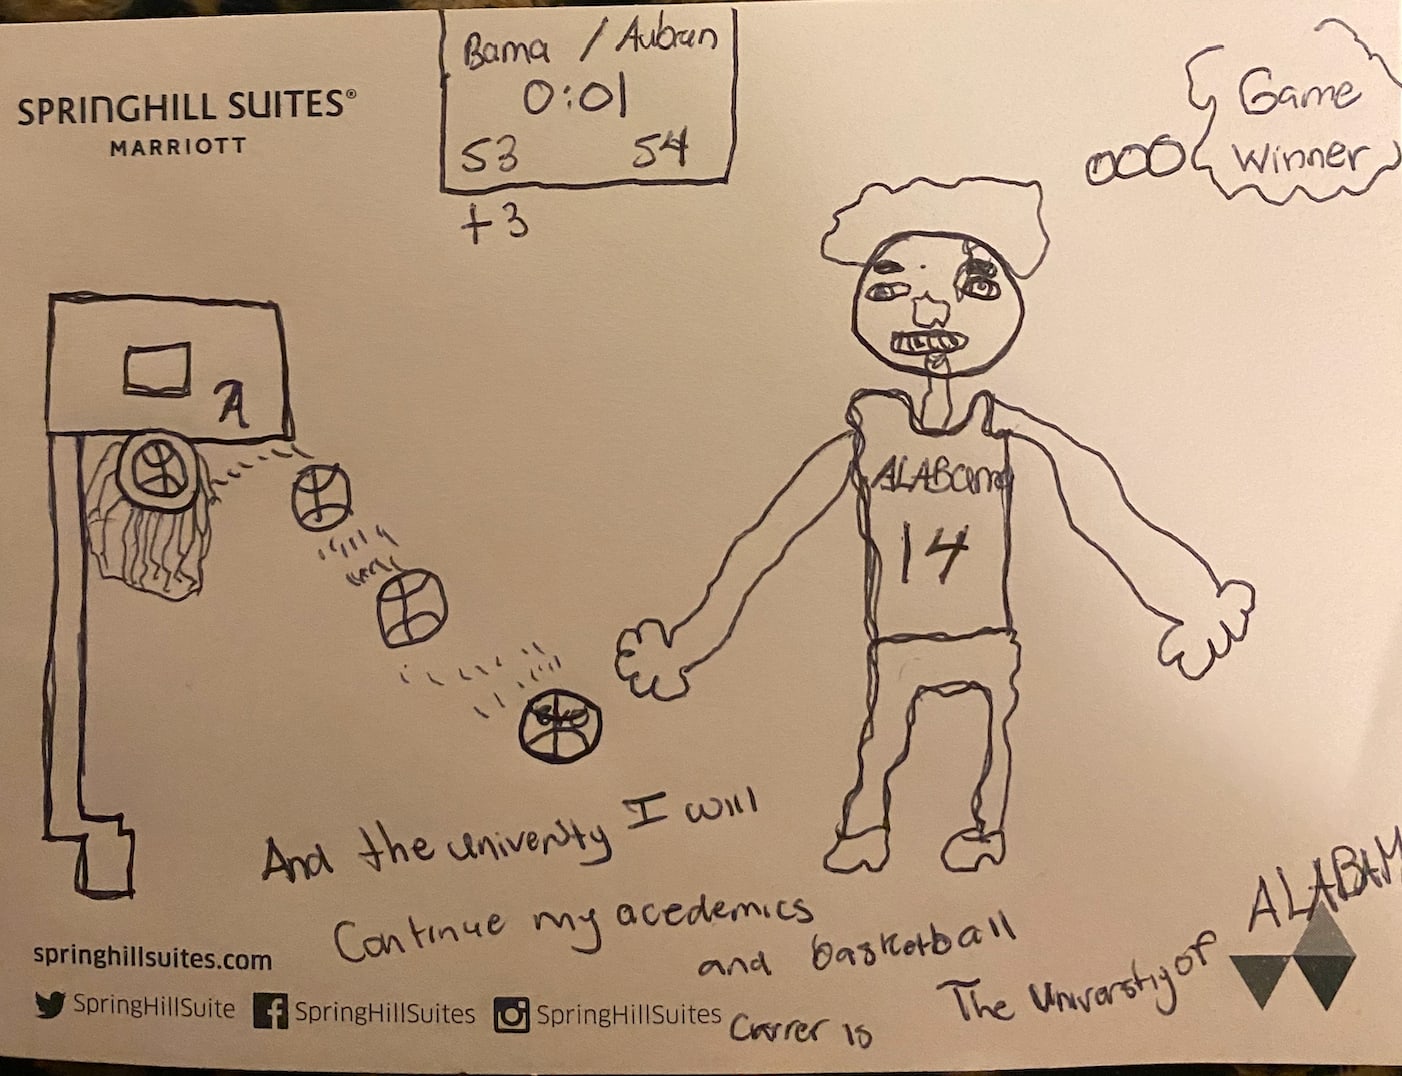 SPRINGHILL SUITES®
MARRIOTT
Bama / Auburn
0:01
53 54
+3
Game
Winner
A
ALABama
14
And the univeristy I will
Continue my acedemics
and basketball
Carrer is
The Universtiy of
ALABAM
springhillsuites.com
SpringHillSuite
SpringHillSuites
SpringHillSuites